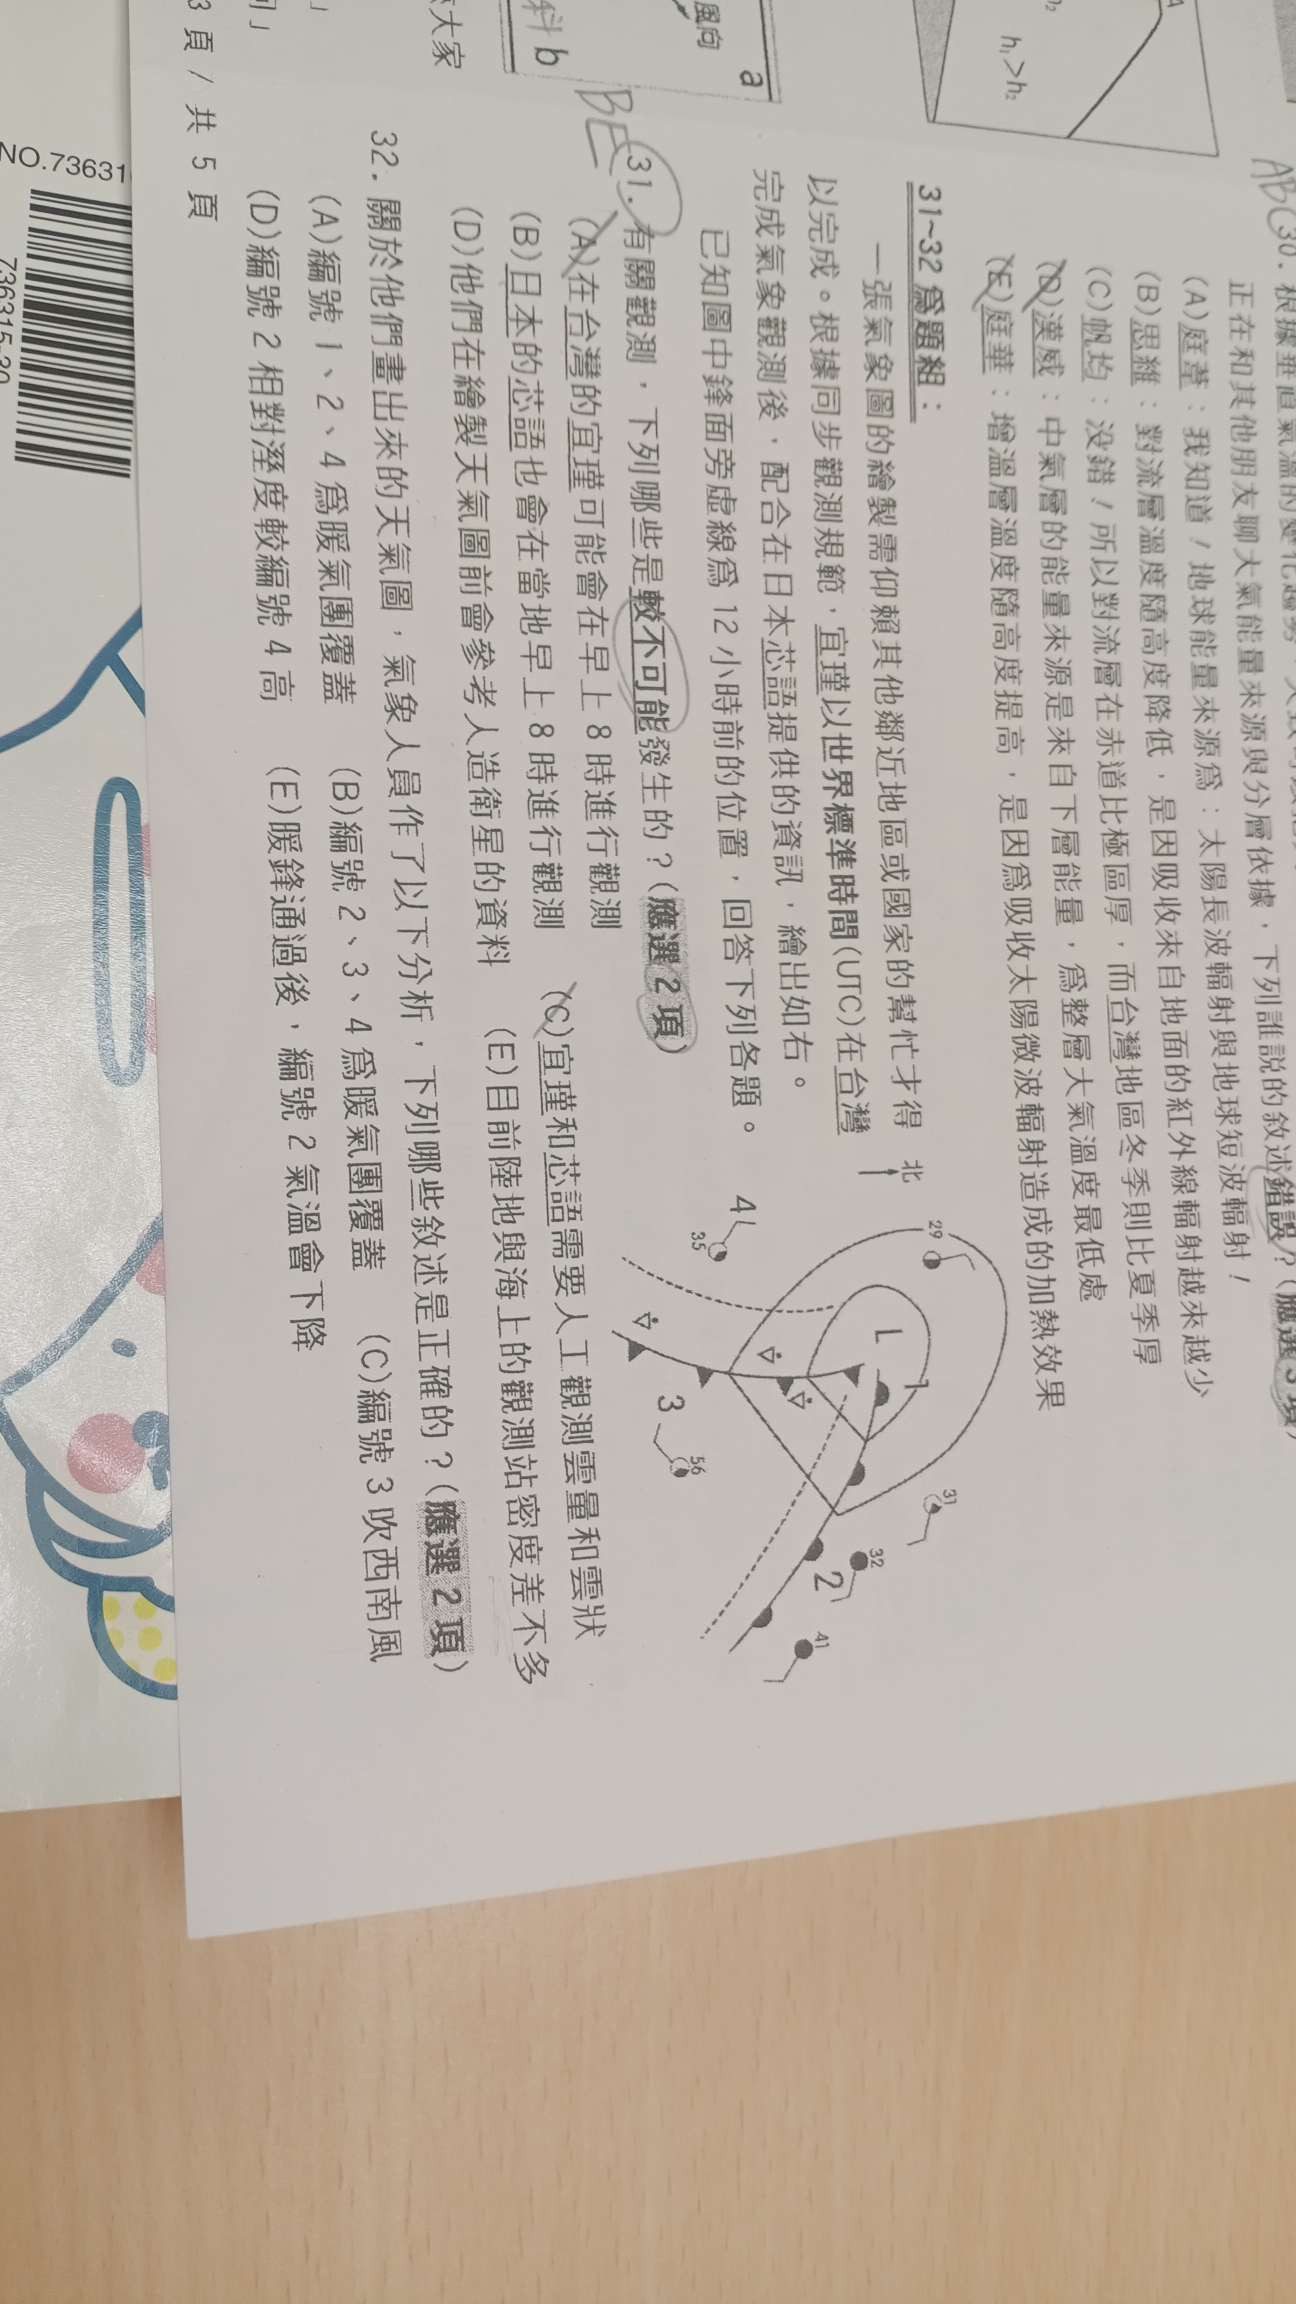 ABC 30. 根據垂直氣溫的變化趨勢，
正在和其他朋友聊大氣能量來源與分層依據，下列誰說的敘述錯誤？(應選3項)
(A)庭葦：我知道！地球能量來源為：太陽長波輻射與地球短波輻射！
(B)思維：對流層溫度隨高度降低，是因吸收來自地面的紅外線輻射越來越少
(C)帆均：沒錯！所以對流層在赤道比極區厚，而台灣地區冬季則比夏季厚
(D)漢威：中氣層的能量來源是來自下層能量，為整層大氣溫度最低處
(E)庭華：增溫層溫度隨高度提高，是因為吸收太陽微波輻射造成的加熱效果
31~32為題組：
一張氣象圖的繪製需仰賴其他鄰近地區或國家的幫忙才得
以完成。根據同步觀測規範，宜瑾以世界標準時間(UTC)在台灣
完成氣象觀測後，配合在日本芯語提供的資訊，繪出如右。
已知圖中鋒面旁虛線為12小時前的位置，回答下列各題。
北
29
L
1
31
32
2
41
4
35
3
56
BE
31. 有關觀測，下列哪些是較不可能發生的？(應選2項)
(A)在台灣的宜瑾可能會在早上8時進行觀測
(B)日本的芯語也會在當地早上8時進行觀測
(C)宜瑾和芯語需要人工觀測雲量和雲狀
(D)他們在繪製天氣圖前會參考人造衛星的資料
(E)目前陸地與海上的觀測站密度差不多
32. 關於他們畫出來的天氣圖，氣象人員作了以下分析，下列哪些敘述是正確的？(應選2項)
(A)編號1、2、4為暖氣團覆蓋
(B)編號2、3、4為暖氣團覆蓋
(C)編號3吹西南風
(D)編號2相對溼度較編號4高
(E)暖鋒通過後，編號2氣溫會下降
3 頁 / 共 5 頁
A
h₁>h₂
風向
a
科 b
大家
」
」
NO.73631